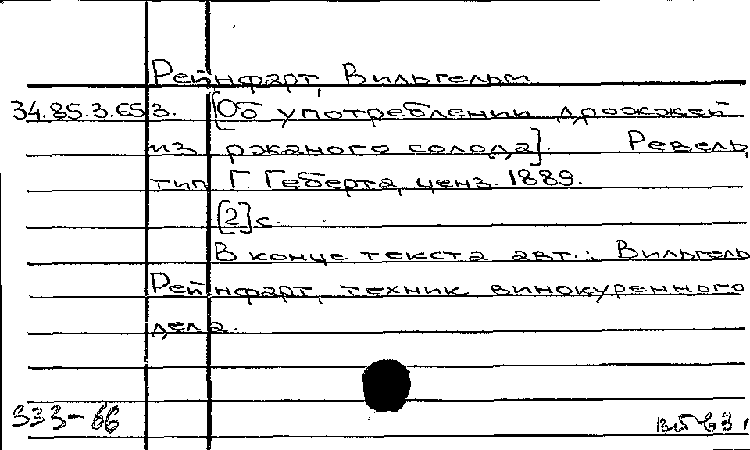 Рейнфарт, Вильгельм.
34.85.3.653. [Об употреблении дрожжей
из ржаного солода]. Ревель,
тип. Г. Геберта, ценз. 1889.
[2] с.
В конце текста авт.: Вильгель
Рейнфарт, техник винокуренного
дела.
333-66